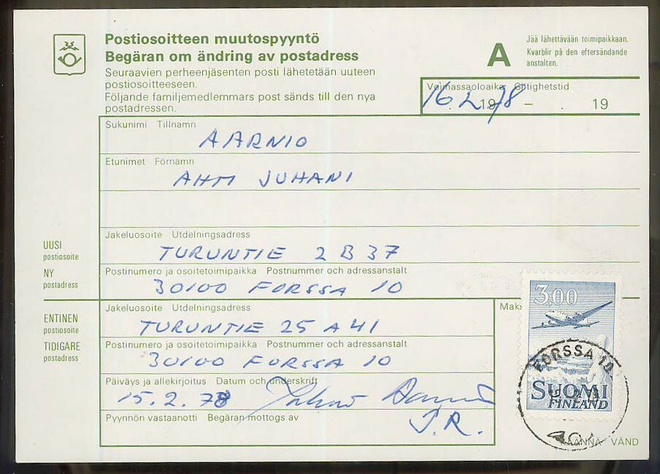 Postiosoitteen muutospyyntö
Begäran om ändring av postadress
Seuraavien perheenjäsenten posti lähetetään uuteen
postiosoitteeseen.
Följande familjemedlemmars post sänds till den nya
postadressen.
A
Jää lähettävään toimipaikkaan.
Kvarblir på den eftersändande
anstalten.
Voimassaoloaika Giltighetstid
16.2.1978 – . 19
Sukunimi Tillnamn
AARNIO
Etunimet Förnamn
AHTI JUHANI
UUSI
postiosoite
NY
postadress
Jakeluosoite Utdelningsadress
TURUNTIE 2 B 37
Postinumero ja osoitetoimipaikka Postnummer och adressanstalt
30100 FORSSA 10
ENTINEN
postiosoite
TIDIGARE
postadress
Jakeluosoite Utdelningsadress
TURUNTIE 25 A 41
Postinumero ja osoitetoimipaikka Postnummer och adressanstalt
30100 FORSSA 10
Päiväys ja allekirjoitus Datum och underskrift
15.2.78
Pyynnön vastaanotti Begäran mottogs av
J.R.
3,00
FORSSA 10
SUOMI
FINLAND
KÄNNÄ VÄND